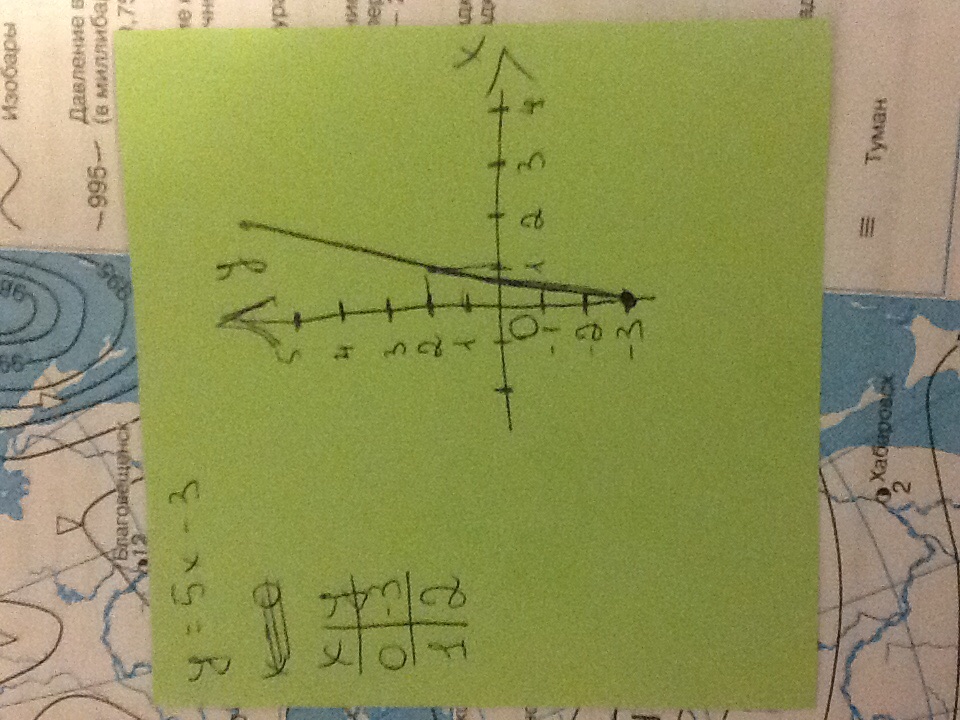 y = 5x - 3
x y
0 -3
1 2
y
5
4
3
2
1
0
-1
-2
-3
1 2 3 4
x
Изобары
—995—
Давление в
(в миллибар
995
99
Благовещенск
12
Туман
Хабаровск
2